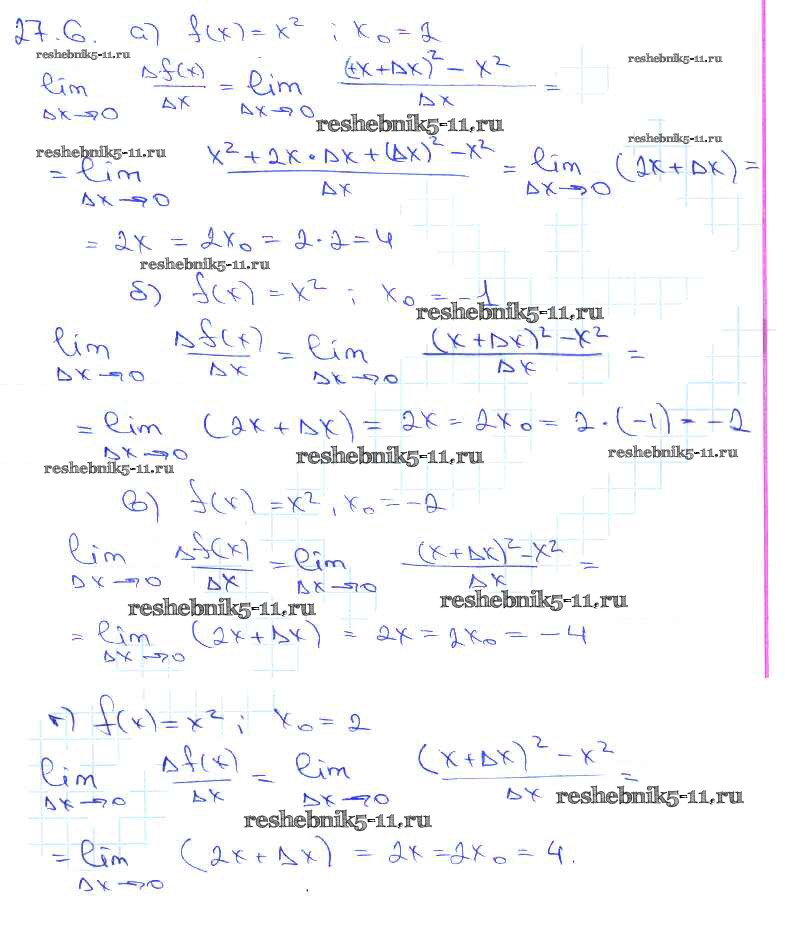 27.6. а) f(x) = x² ; x₀ = 2
reshebnik5-11.ru reshebnik5-11.ru
lim Δx→0 Δf(x)/Δx = lim Δx→0 ((x+Δx)² − x²)/Δx =
reshebnik5-11.ru
reshebnik5-11.ru reshebnik5-11.ru
= lim Δx→0 (x² + 2x·Δx + (Δx)² − x²)/Δx = lim Δx→0 (2x + Δx) =
= 2x = 2x₀ = 2·2 = 4
reshebnik5-11.ru
б) f(x) = x² ; x₀ = −1
reshebnik5-11.ru
lim Δx→0 Δf(x)/Δx = lim Δx→0 ((x+Δx)² − x²)/Δx =
= lim Δx→0 (2x + Δx) = 2x = 2x₀ = 2·(−1) = −2
reshebnik5-11.ru reshebnik5-11.ru reshebnik5-11.ru
в) f(x) = x², x₀ = −2
lim Δx→0 Δf(x)/Δx = lim Δx→0 ((x+Δx)² − x²)/Δx =
reshebnik5-11.ru reshebnik5-11.ru
= lim Δx→0 (2x + Δx) = 2x = 2x₀ = −4
г) f(x) = x² ; x₀ = 2
lim Δx→0 Δf(x)/Δx = lim Δx→0 ((x+Δx)² − x²)/Δx =
reshebnik5-11.ru
reshebnik5-11.ru
= lim Δx→0 (2x + Δx) = 2x = 2x₀ = 4.